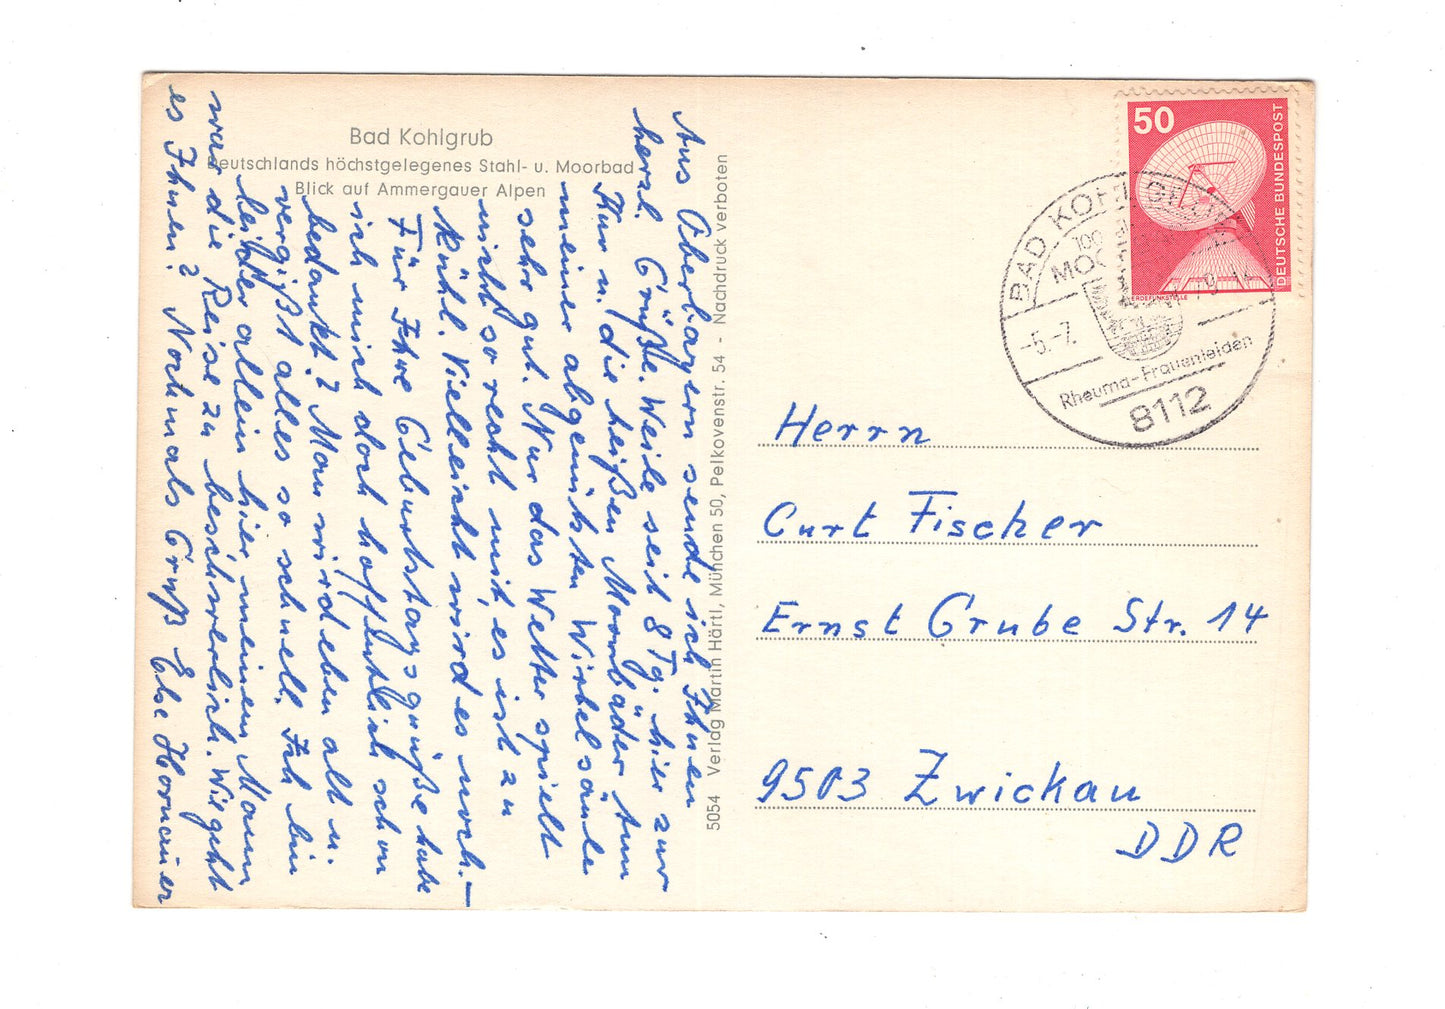 Bad Kohlgrub
Deutschlands höchstgelegenes Stahl- u. Moorbad
Blick auf Ammergauer Alpen
Aus Oberbayern sende ich Ihnen
herzl. Grüße. Weile seit 8 Tg. hier zur
Kur u. die heißen Moorbäder tun
meiner abgenützten Wirbelsäule
sehr gut. Nur das Wetter spielt
nicht so recht mit, es ist zu
kühl. Vielleicht wird es noch.—
Für Ihre Geburtstagsgrüße habe
ich mich doch hoffentlich schon
bedankt? Man wird eben alt u.
vergißt alles so schnell. Ich bin
leider allein hier, meinem Mann
war die Reise zu beschwerlich. Wie geht
es Ihnen? Nochmals Gruß Else
5054 Verlag Martin Härtl, München 50, Pelkovenstr. 54 - Nachdruck verboten
50
DEUTSCHE BUNDESPOST
ERDEFUNKSTELLE
BAD KOHLGRUB
100
MOO
-5.-7. 79-14
Rheuma-Frauenleiden
8112
Herrn
Curt Fischer
Ernst Grube Str. 14
9503 Zwickau
DDR